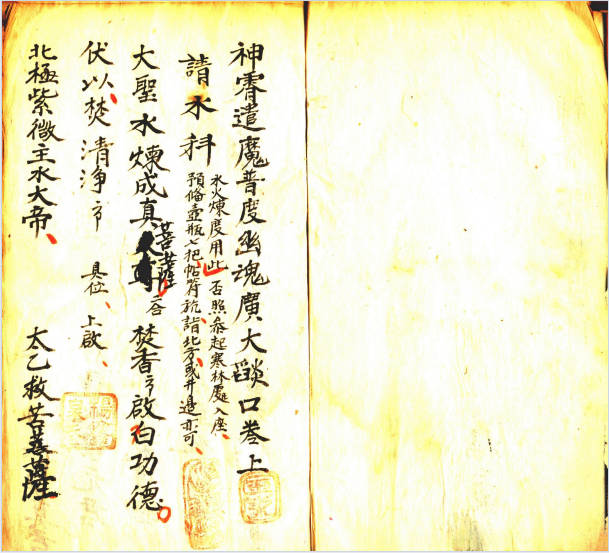 神霄遣魔普度幽魂廣大燄口卷上
請水科
水火煉度用此否照叅起寒林處入座、
預俻壺瓶七把帖符䟽詣北方或井邊亦可、
大聖水煉成真菩薩 焚香〻啟白功德。
伏以焚清净〻 具位、上啟、
北極紫微主水大帝、 太乙救苦菩薩